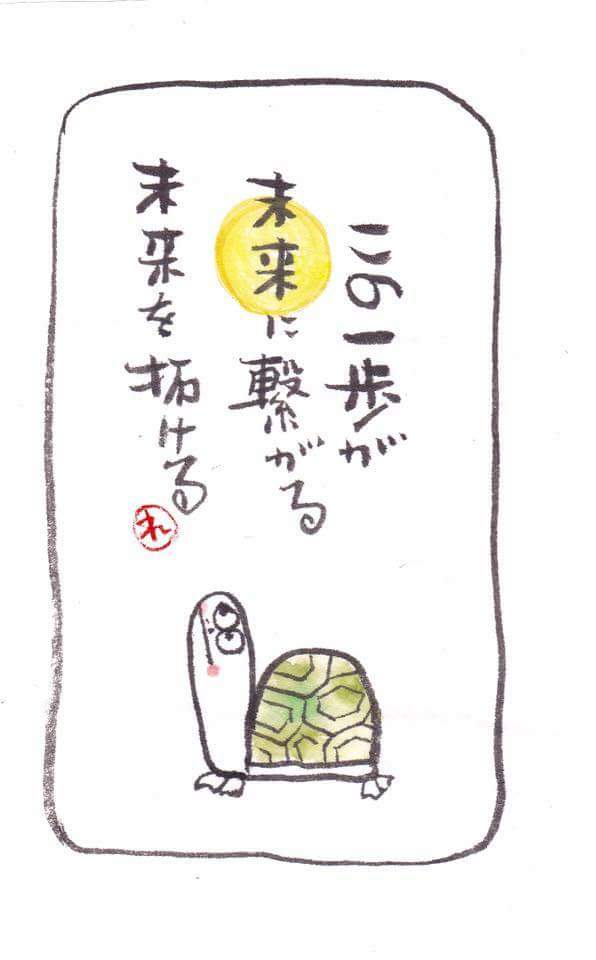 この一歩が
未来に繋がる
未来を拓ける
れ